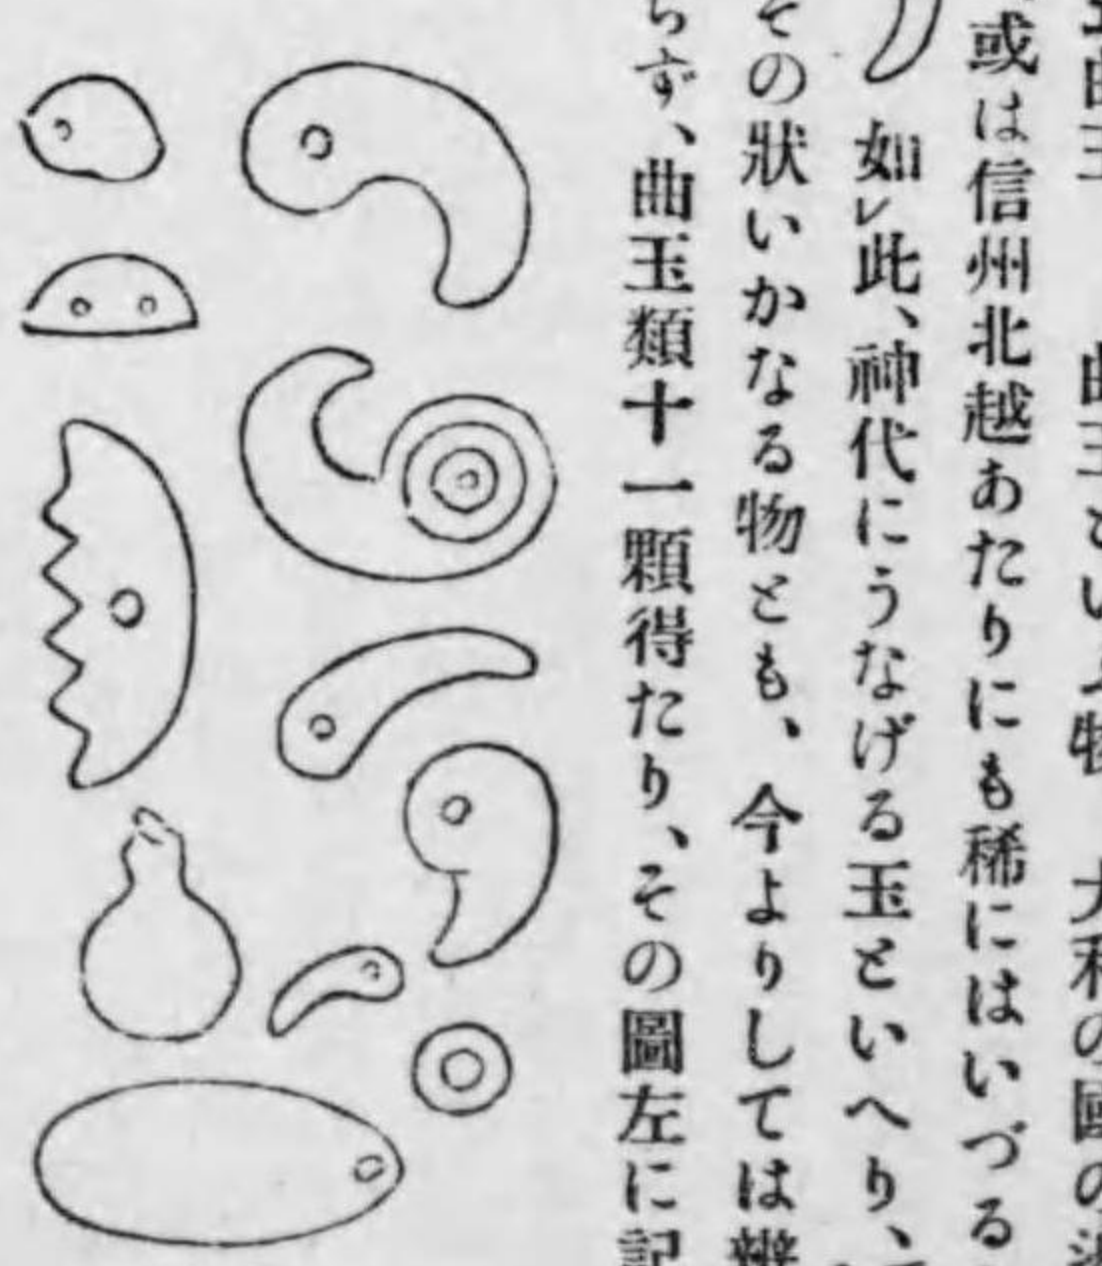 曲玉といふ物 大和の國の
或は信州北越あたりにも稀にはいづる
如㆑此、神代にうなげる玉といへり、
その狀いかなる物とも、今よりしては辨
らず、曲玉類十一顆得たり、その圖左に記